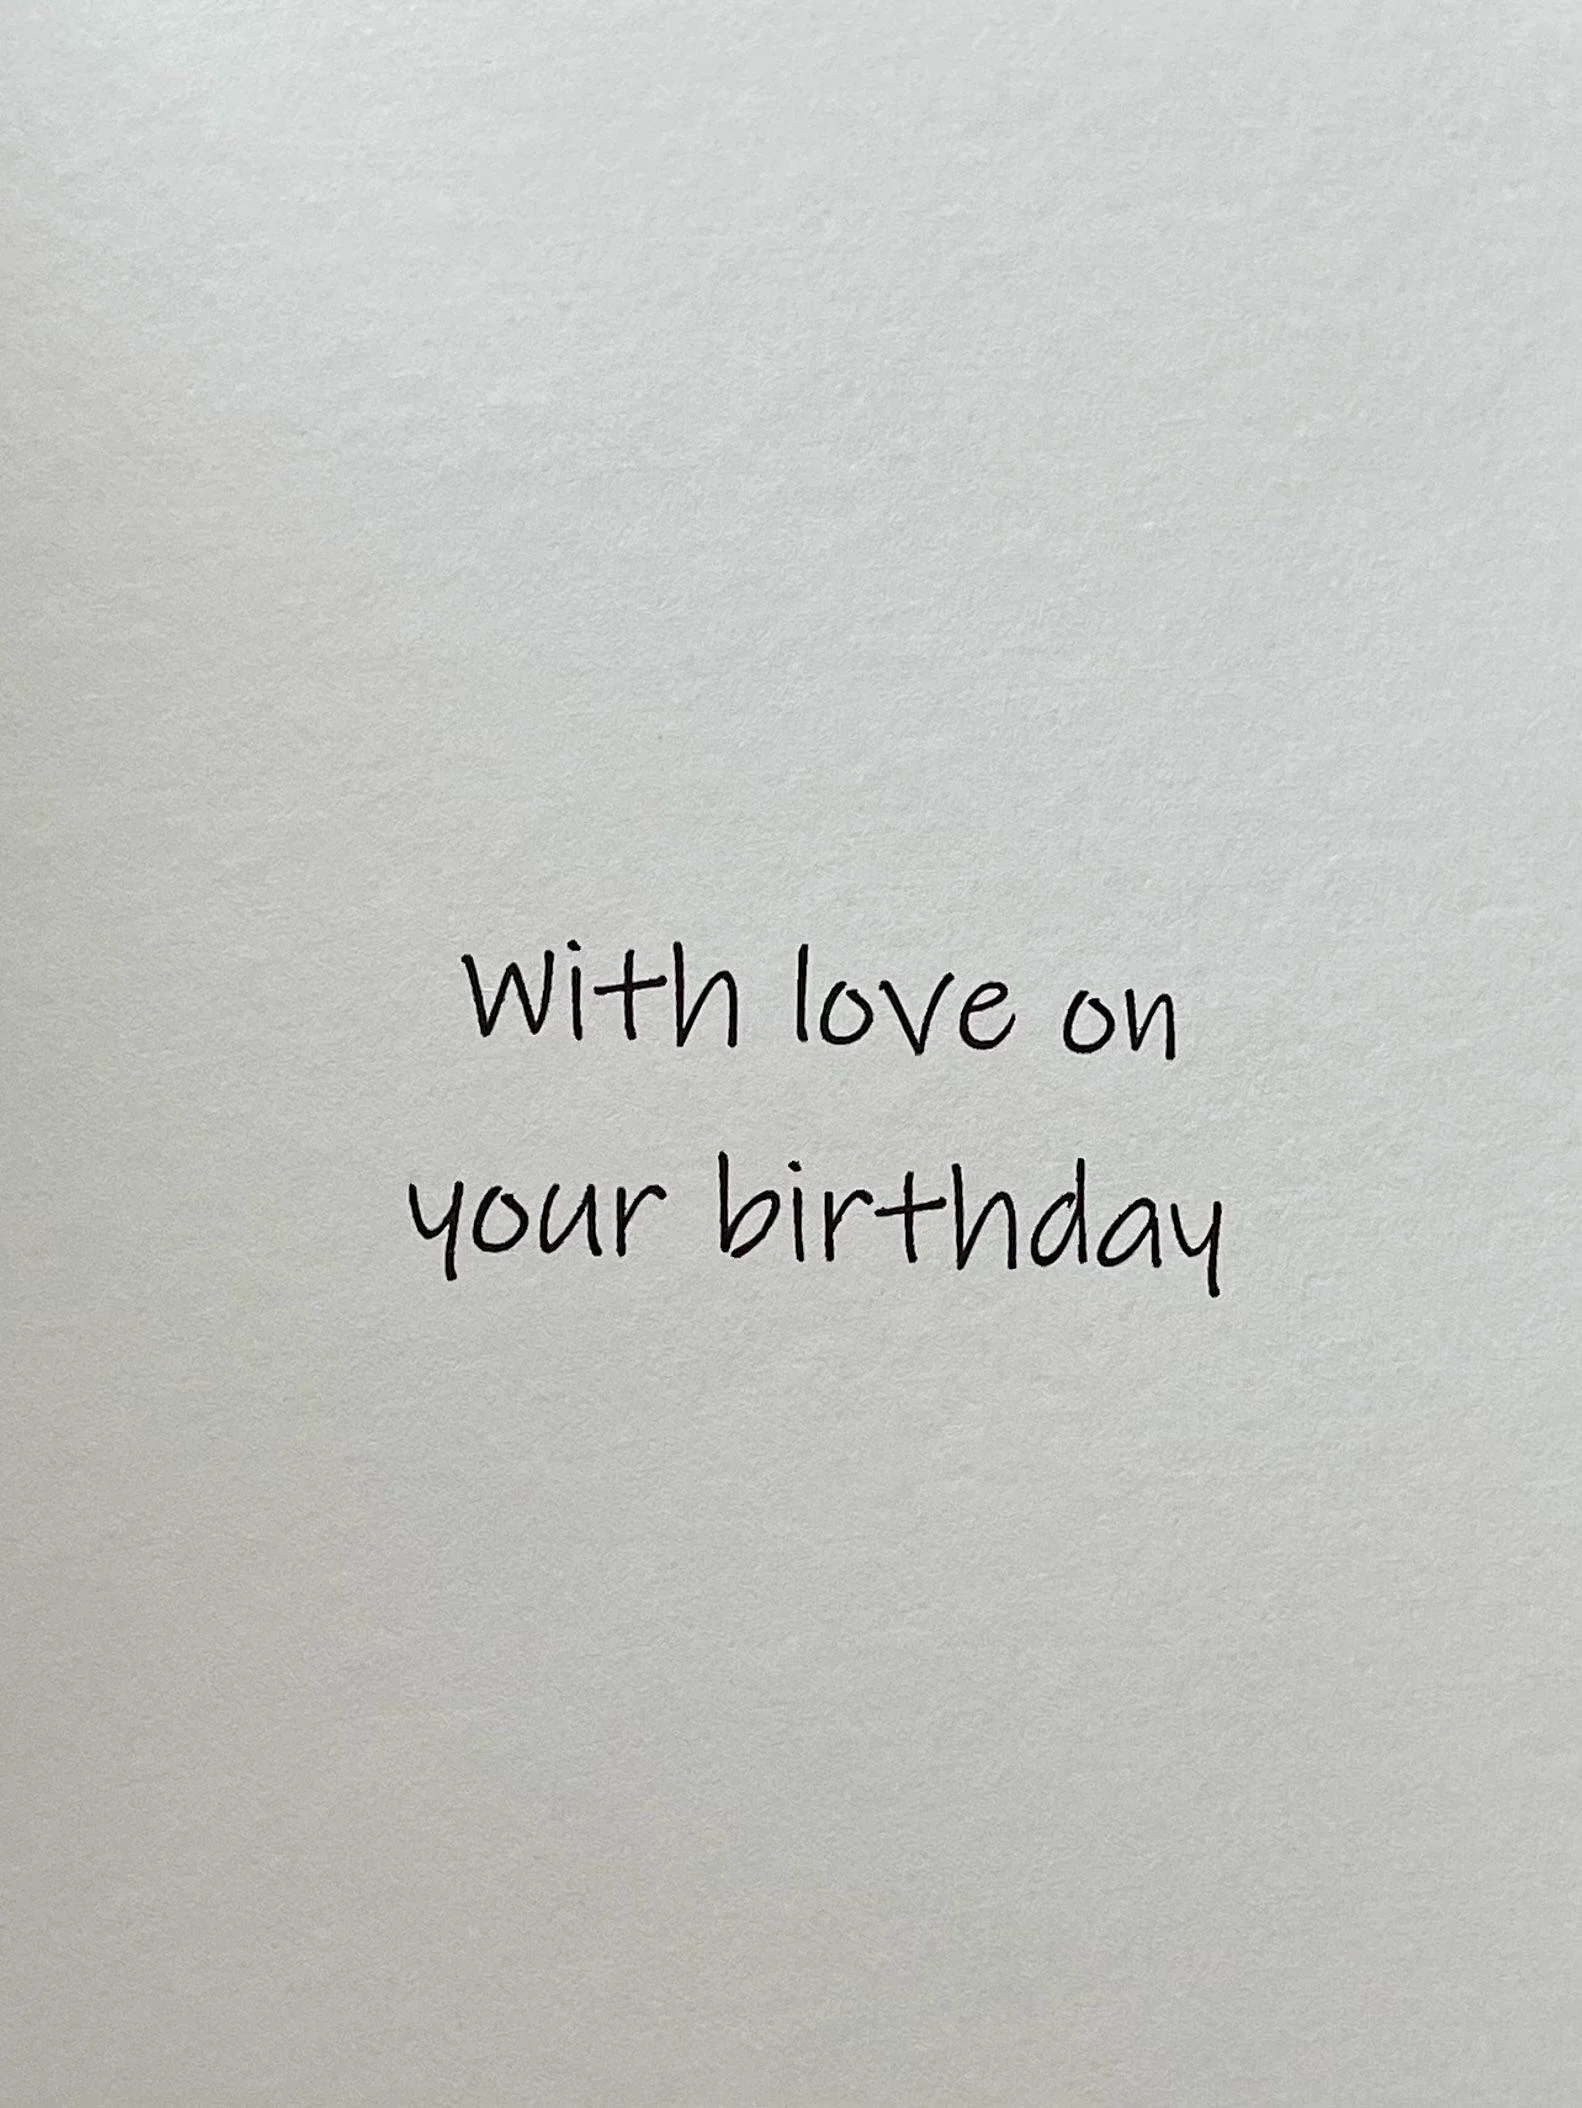 With love on
your birthday